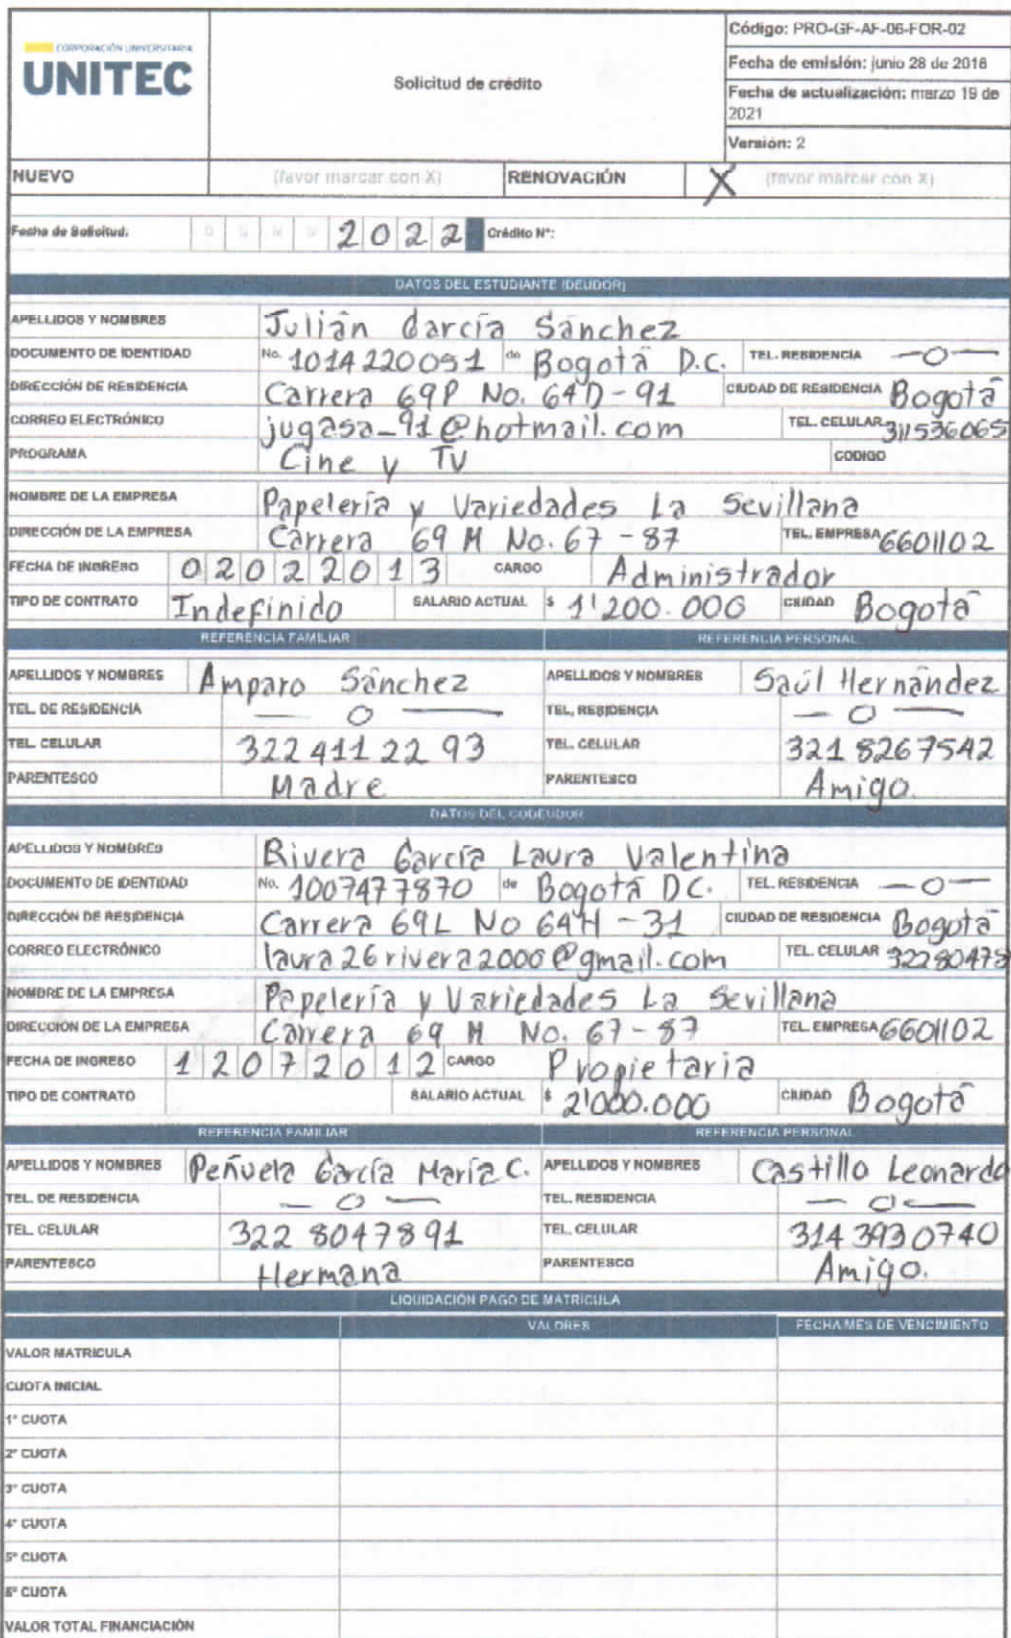 CORPORACIÓN UNIVERSITARIA
UNITEC
Solicitud de crédito
Código: PRO-GF-AF-06-FOR-02
Fecha de emisión: junio 28 de 2018
Fecha de actualización: marzo 19 de 2021
Versión: 2
NUEVO (favor marcar con X) RENOVACIÓN X (favor marcar con X)
Fecha de Solicitud: D D M M 2022 Crédito N°:
DATOS DEL ESTUDIANTE (DEUDOR)
APELLIDOS Y NOMBRES Julián García Sánchez
DOCUMENTO DE IDENTIDAD No. 1014220051 de Bogotá D.C. TEL. RESIDENCIA —0—
DIRECCIÓN DE RESIDENCIA Carrera 69P No. 64D-91 CIUDAD DE RESIDENCIA Bogotá
CORREO ELECTRÓNICO jugasa_91@hotmail.com TEL. CELULAR 311536065
PROGRAMA Cine y TV CODIGO
NOMBRE DE LA EMPRESA Papelería y Variedades La Sevillana
DIRECCIÓN DE LA EMPRESA Carrera 69 M No. 67-87 TEL. EMPRESA 6601102
FECHA DE INGRESO 02022013 CARGO Administrador
TIPO DE CONTRATO Indefinido SALARIO ACTUAL $ 1'200.000 CIUDAD Bogotá
REFERENCIA FAMILIAR REFERENCIA PERSONAL
APELLIDOS Y NOMBRES Amparo Sánchez APELLIDOS Y NOMBRES Saúl Hernández
TEL. DE RESIDENCIA —0— TEL. RESIDENCIA —0—
TEL. CELULAR 322 411 22 93 TEL. CELULAR 321 8267542
PARENTESCO Madre PARENTESCO Amigo.
DATOS DEL CODEUDOR
APELLIDOS Y NOMBRES Rivera García Laura Valentina
DOCUMENTO DE IDENTIDAD No. 1007477870 de Bogotá DC. TEL. RESIDENCIA —0—
DIRECCIÓN DE RESIDENCIA Carrera 69L No 64H-31 CIUDAD DE RESIDENCIA Bogotá
CORREO ELECTRÓNICO laura26rivera2000@gmail.com TEL. CELULAR 32280478
NOMBRE DE LA EMPRESA Papelería y Variedades La Sevillana
DIRECCIÓN DE LA EMPRESA Carrera 69 M No. 67-87 TEL. EMPRESA 6601102
FECHA DE INGRESO 12072012 CARGO Propietaria
TIPO DE CONTRATO SALARIO ACTUAL $ 2'000.000 CIUDAD Bogotá
REFERENCIA FAMILIAR REFERENCIA PERSONAL
APELLIDOS Y NOMBRES Peñuela García María C. APELLIDOS Y NOMBRES Castillo Leonardo
TEL. DE RESIDENCIA —0— TEL. RESIDENCIA —0—
TEL. CELULAR 322 8047891 TEL. CELULAR 314 3930740
PARENTESCO Hermana PARENTESCO Amigo.
LIQUIDACIÓN PAGO DE MATRÍCULA
VALORES FECHA MES DE VENCIMIENTO
VALOR MATRICULA
CUOTA INICIAL
1° CUOTA
2° CUOTA
3° CUOTA
4° CUOTA
5° CUOTA
6° CUOTA
VALOR TOTAL FINANCIACIÓN